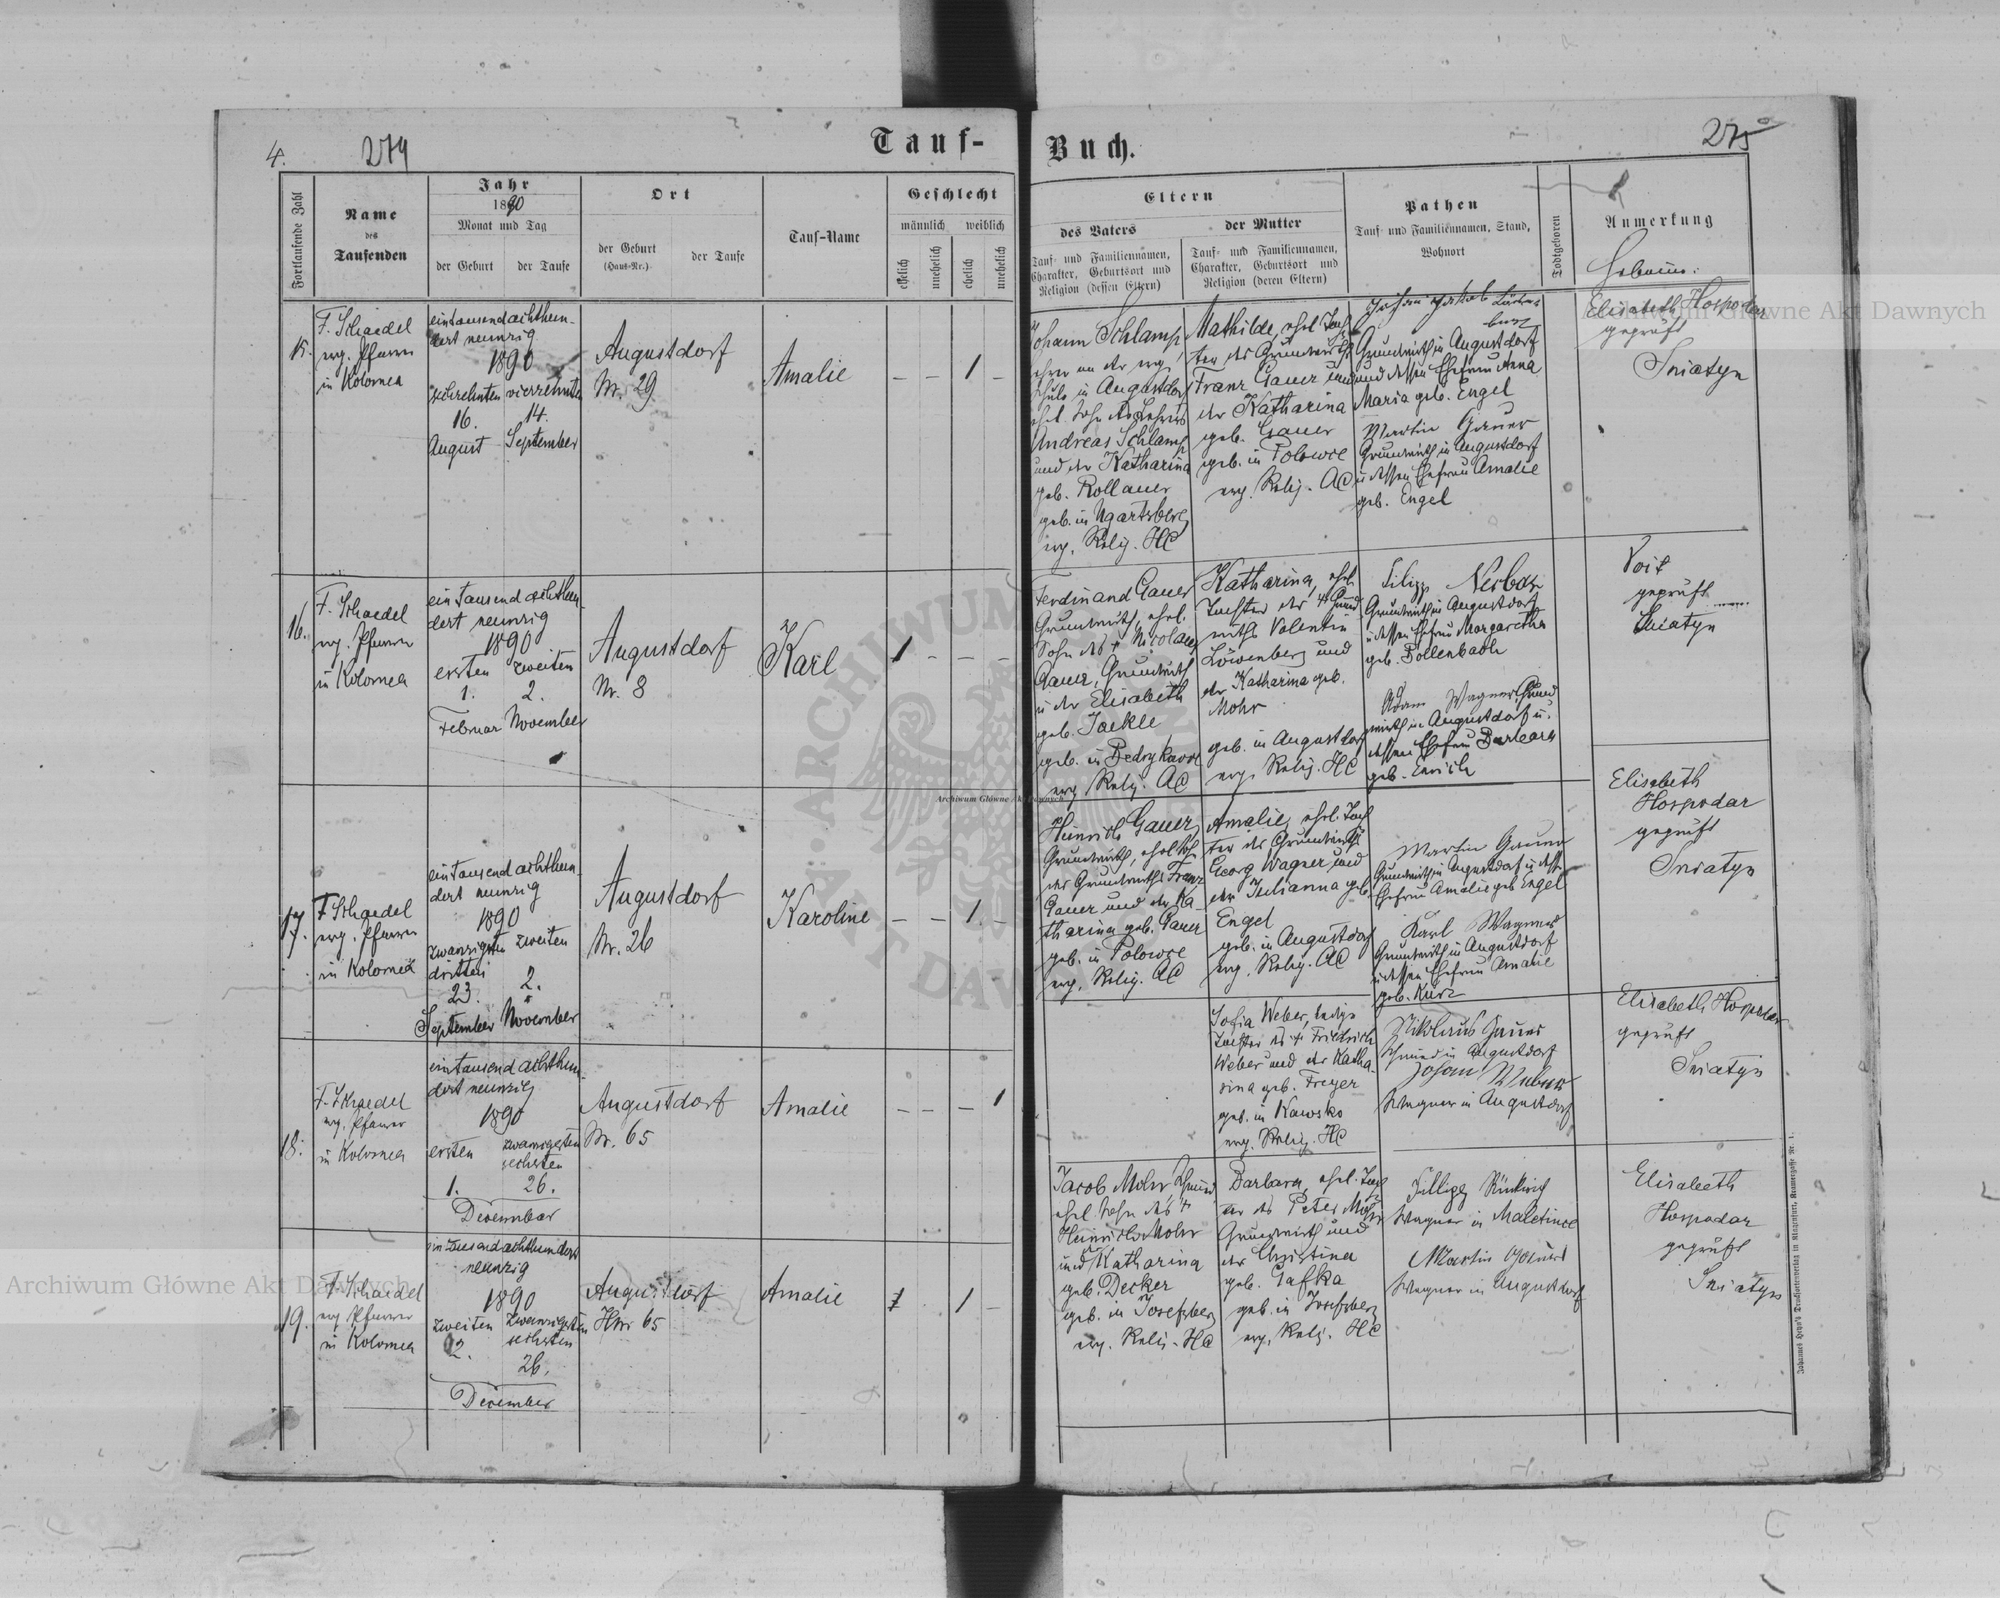 4.
274
Tauf-
Buch.
275
Fortlaufende Zahl
Name
des
Taufenden
Jahr
1890
Monat und Tag
der Geburt
der Taufe
Ort
der Geburt
(Haus-Nr.)
der Taufe
Tauf-Name
Geschlecht
männlich
weiblich
ehelich
unehelich
ehelich
unehelich
Eltern
des Vaters
Tauf- und Familiennamen,
Charakter, Geburtsort und
Religion (dessen Eltern)
der Mutter
Tauf- und Familiennamen,
Charakter, Geburtsort und
Religion (deren Eltern)
Pathen
Tauf- und Familiennamen, Stand,
Wohnort
Todtgeboren
Anmerkung
15.
F. Schaedel
evg. Pfarrer
in Kolomea
eintausendachthun-
dert neunzig
1890
sechzehnten vierzehnten
16. 14.
August September
Augustdorf
Nr. 29
Amalie
— — 1 —
Johann Schlamp
Lehrer an der evg.
Schule in Augustdorf
ehel. Sohn des Lehrers
Andreas Schlamp
und der Katharina
geb. Rollauer
geb. in Ugartsberg
evg. Relig. HC
Mathilde, ehel. Toch
ter des Grundwirths
Franz Gauer und
der Katharina
geb. Gauer
geb. in Polowce
evg. Relig. AC
Grundwirth in Augustdorf
und dessen Ehefrau Anna
Maria geb. Engel
Martin Gauer
Grundwirth in Augustdorf
u dessen Ehefrau Amalie
geb. Engel
Elisabeth Hospodar
geprüft
Sniatyn
16.
F. Schaedel
evg. Pfarrer
in Kolomea
ein tausend achthun-
dert neunzig
1890
ersten zweiten
1. 2.
Februar November
Augustdorf
Nr. 8
Karl
1 — — —
Ferdinand Gauer
Grundwirth, ehel.
Sohn des + Nicolaus
Gauer, Grundwirth
u der Elisabeth
geb. Jaekle
geb. in
evg Relig. AC
Katharina, ehel
Tochter des + Grund
wirths Valentin
Löwenberg und
der Katharina geb.
Mohr
geb. in Augustdorf
evg. Relig. HC
Filipp
Grundwirth in Augustdorf
u dessen Ehefrau Margaretha
geb. Bollenbach
Adam Wagner Grund
wirth in Augustdorf u.
dessen Ehefrau Barbara
geb. Emrich
Voit
geprüft
Sniatyn
17.
F. Schaedel
evg. Pfarrer
in Kolomea
eintausend achthun-
dert neunzig
1890
zwanzigsten zweiten
dritten
23. 2.
September November
Augustdorf
Nr. 26
Karoline
— — 1 —
Heinrich Gauer
Grundwirth, ehel Sohn
des Grundwirths Franz
Gauer und der Ka-
tharina geb. Gauer
geb. in Polowce
evg. Relig. AC
Amalie, ehel. Toch
ter des Grundwirths
Georg Wagner und
der Julianna geb.
Engel
geb. in Augustdorf
evg. Relig. AC
Martin Gauer
Grundwirth in Augustdorf u dessen
Ehefrau Amalie geb Engel
Karl Wagner
Grundwirth in Augustdorf
u dessen Ehefrau Amalie
geb. Kurz
Elisabeth
Hospodar
geprüft
Sniatyn
18.
F. Schaedel
evg. Pfarrer
in Kolomea
eintausend achthun-
dert neunzig
1890
ersten zwanzigsten
sechsten
1. 26.
Dezember
Augustdorf
Nr. 65
Amalie
— — — 1
Sofia Weber, ledige
Tochter des + Friedrich
Weber und der Katha-
rina geb. Freyer
geb. in Kawsko
evg. Relig. HC
Nikolaus Gauer
Schmied in Augustdorf
Johann Weber
Wagner in Augustdorf
Elisabeth Hospodar
geprüft
Sniatyn
19.
F. Schaedel
evg Pfarrer
in Kolomea
ein tausend achthundert
neunzig
1890
zweiten zwanzigsten
sechsten
2. 26.
Dezember
Augustdorf
HNr 65
Amalie
1 —
Jacob Mohr, Schmied
ehel Sohn des +
Heinrich Mohr
und Katharina
geb. Decker
geb. in Josefsberg
evg. Relig. HC
Barbara, ehel. Toch
ter des Peter Mohr
Grundwirth und
der Christina
geb. Gafka
geb. in Josefsberg
evg. Relig. HC
Wagner in
Martin
Wagner in Augustdorf
Elisabeth
Hospodar
geprüft
Sniatyn
Archiwum Główne Akt Dawnych
Archiwum Główne Akt Dawnych
Archiwum Główne Akt Dawnych